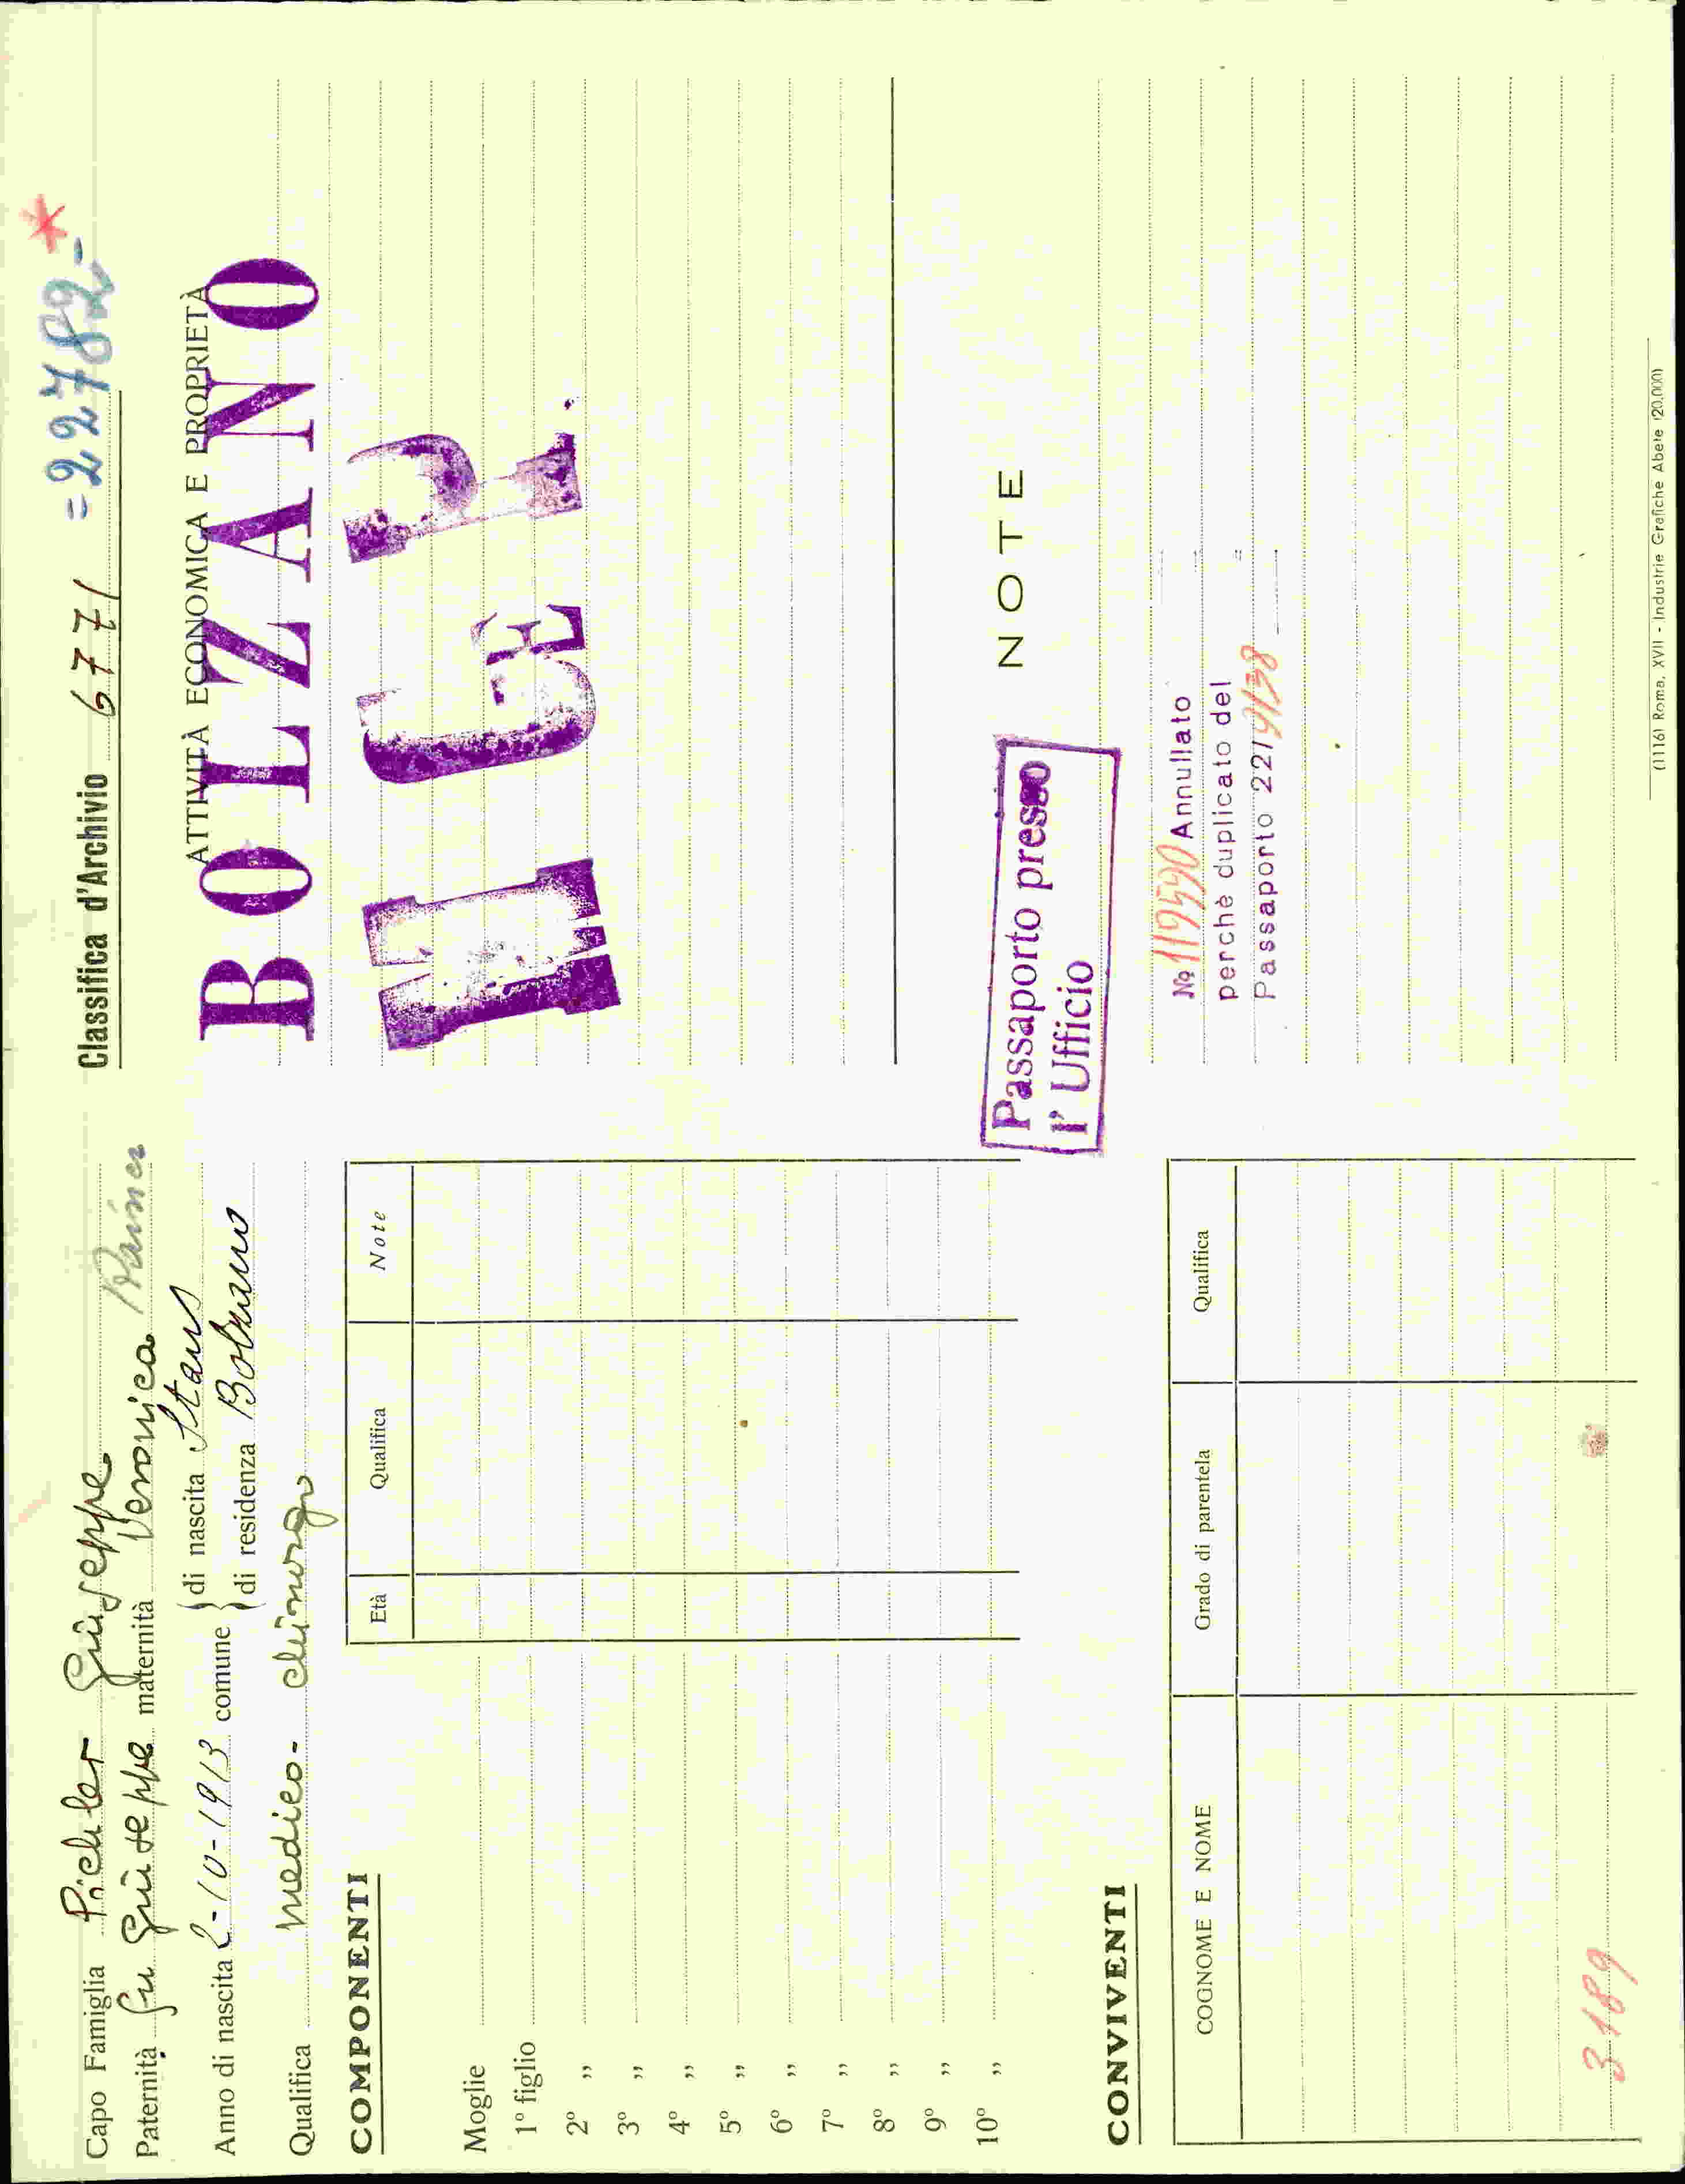 Capo Famiglia Pichler Giuseppe
Paternità fu Giuseppe maternità Veronica
Anno di nascita 2-10-1913 comune { di nascita Stans
{ di residenza Bolzano
Qualifica medico-chirurgo
COMPONENTI
Età Qualifica Note
Moglie
1º figlio
2º „
3º „
4º „
5º „
6º „
7º „
8º „
9º „
10º „
CONVIVENTI
COGNOME E NOME Grado di parentela Qualifica
3189
Classifica d'Archivio 6771 =22782-*
ATTIVITÀ ECONOMICA E PROPRIETÀ
BOLZANO
NOTE
Passaporto presso
l'Ufficio
№ 119590 Annullato
perchè duplicato del
Passaporto 221/9/38
(1116) Roma, XVII - Industrie Grafiche Abete (20.000)